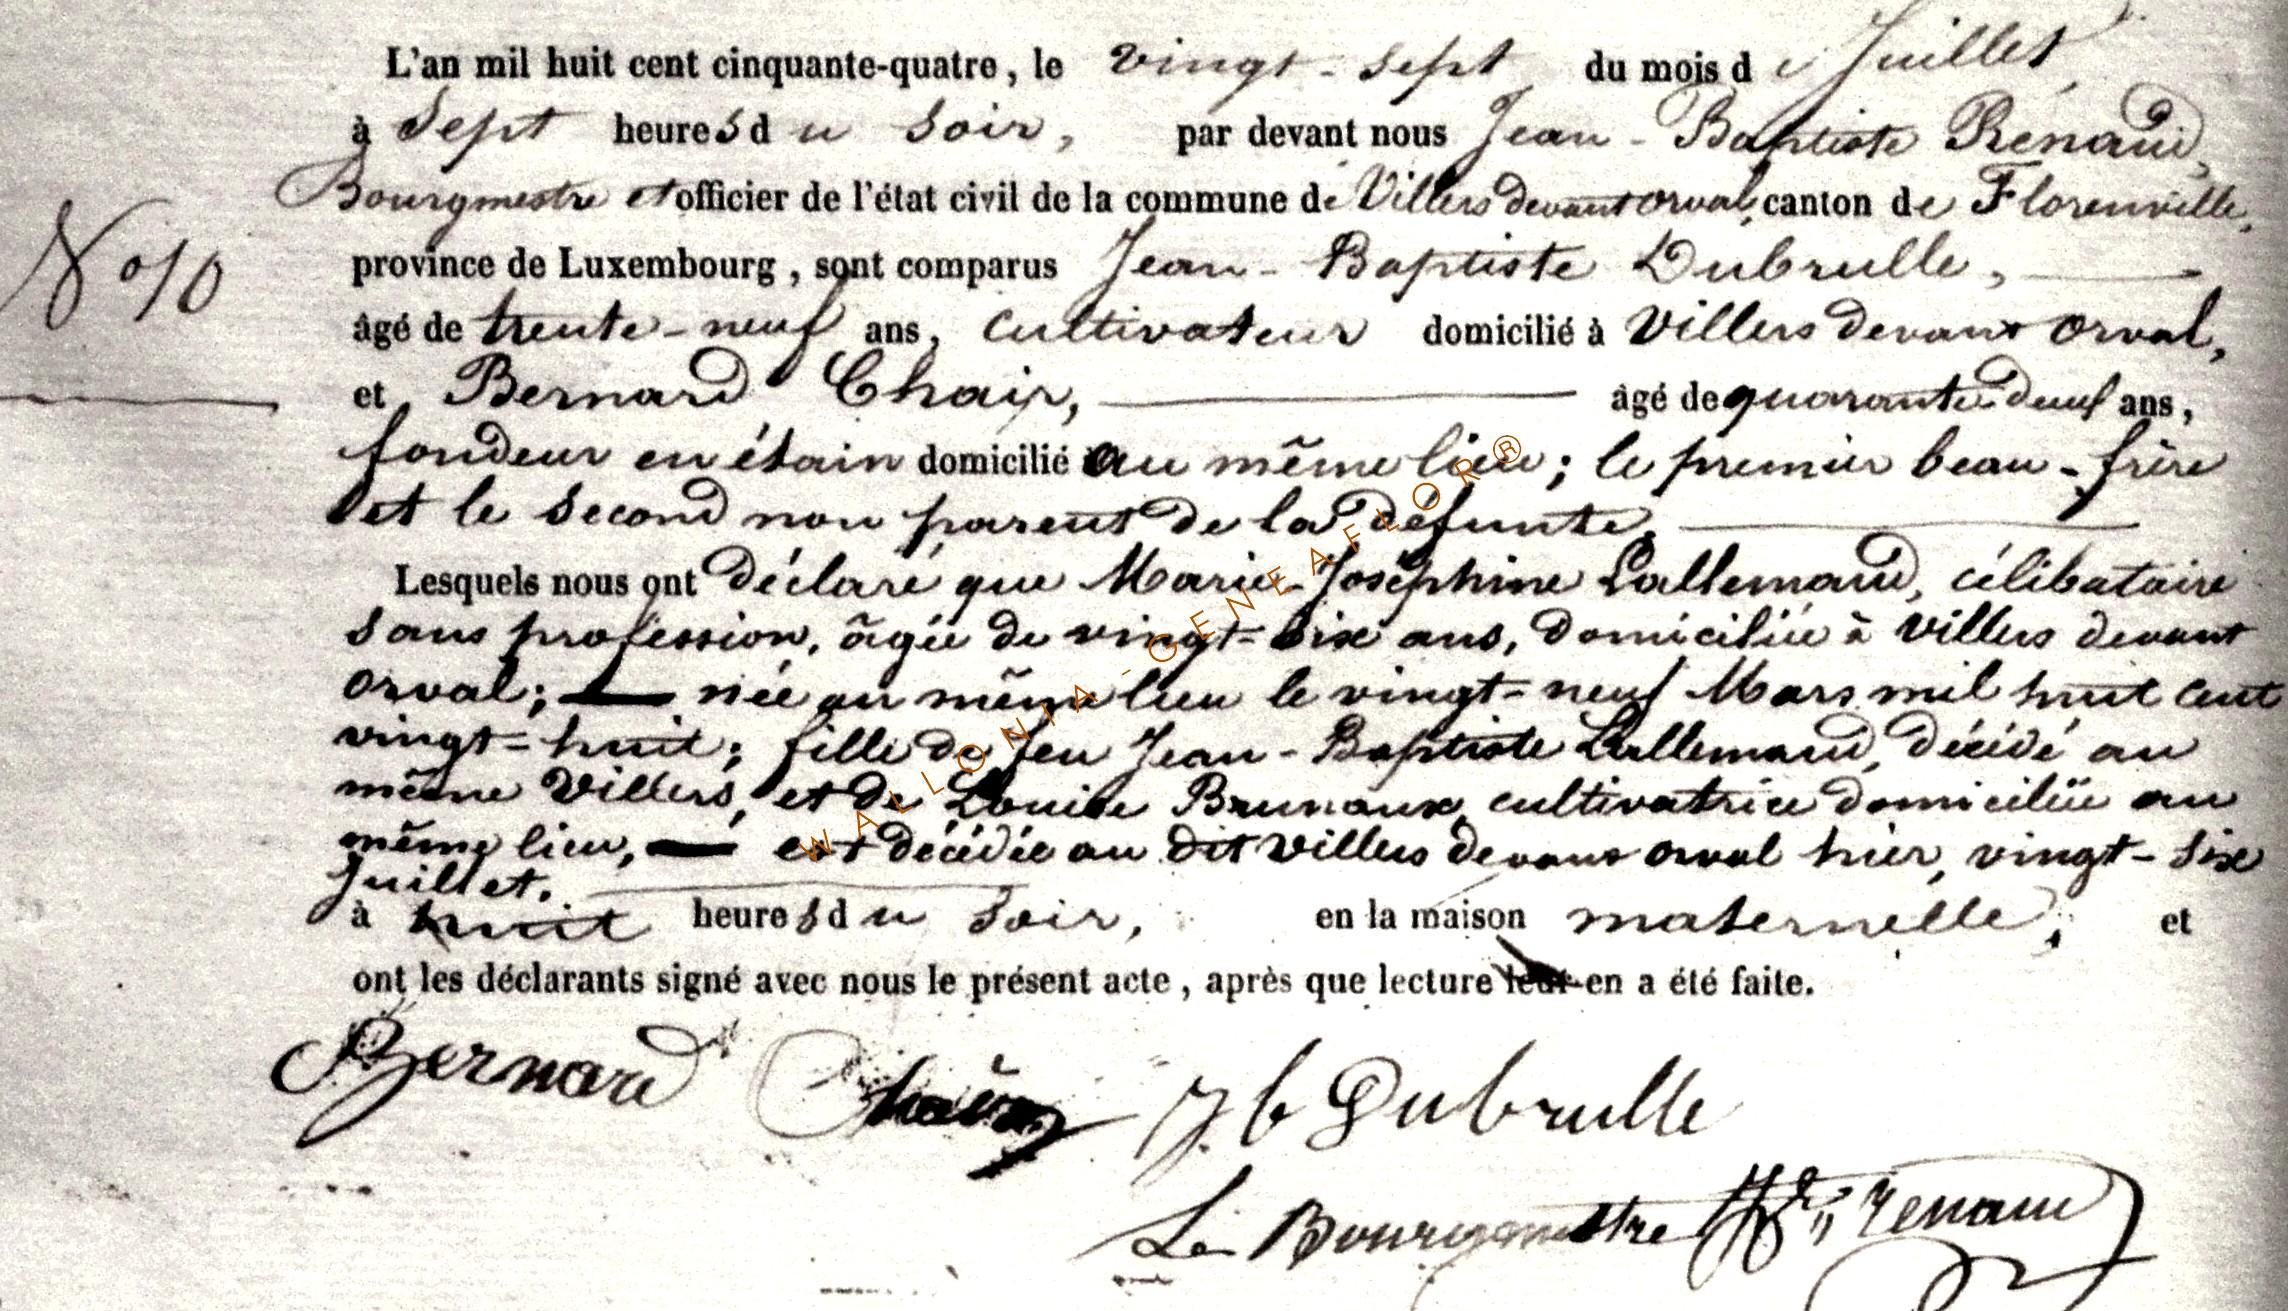 L'an mil huit cent cinquante-quatre, le vingt-sept du mois de Juillet
à Sept heures du Soir, par devant nous Jean-Baptiste Renaud,
Bourgmestre et officier de l'état civil de la commune de Villers devant orval, canton de Florenville,
N° 10
province de Luxembourg, sont comparus Jean-Baptiste Dubrulle,
âgé de trente-neuf ans, cultivateur domicilié à Villers devant orval,
et Bernard âgé de quarante ans,
fondeur en étain domicilié au même lieu; le premier beau-frère
et le second non parent de la défunte,
Lesquels nous ont déclaré que Marie-Joséphine Lallemand, célibataire
sans profession, âgée de vingt-six ans, domiciliée à Villers devant
orval; née au même lieu le vingt-neuf Mars mil huit cent
vingt-huit; fille de feu Jean-Baptiste Lallemand, décédé au
même Villers, et de Louise Brunaux, cultivatrice domiciliée au
même lieu, est décédée au dit Villers devant orval hier, vingt-six
Juillet.
à huit heures du Soir, en la maison maternelle; et
ont les déclarants signé avec nous le présent acte, après que lecture leur en a été faite.
Bernard
J b Dubrulle
Le Bourgmestre Renaud
WALLONIA-GENEAFLOR®